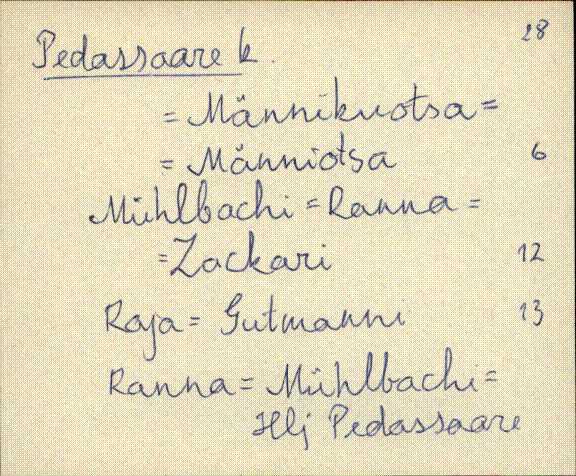 Pedassaare k. 28
= Männikuotsa =
= Männiotsa 6
Mühlbachi = Ranna =
= Zackari 12
Raja = Gutmanni 13
Ranna = Mühlbachi =
Hlj Pedassaare